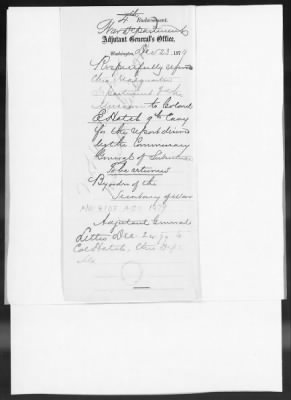 4th Endorsement.
War Department,
Adjutant General's Office,
Washington, Dec 23, 1879
Respectfully
thro Headquarters
Department of the
Missouri to Colonel
E. Hatch 9th Cavy
for the report desired
by the Commissary
General of Subsistence
To be returned
By order of the
Secretary of War
Adjutant General
Letter Dec 24, 79 to
Col Hatch, thro Dept
Mo